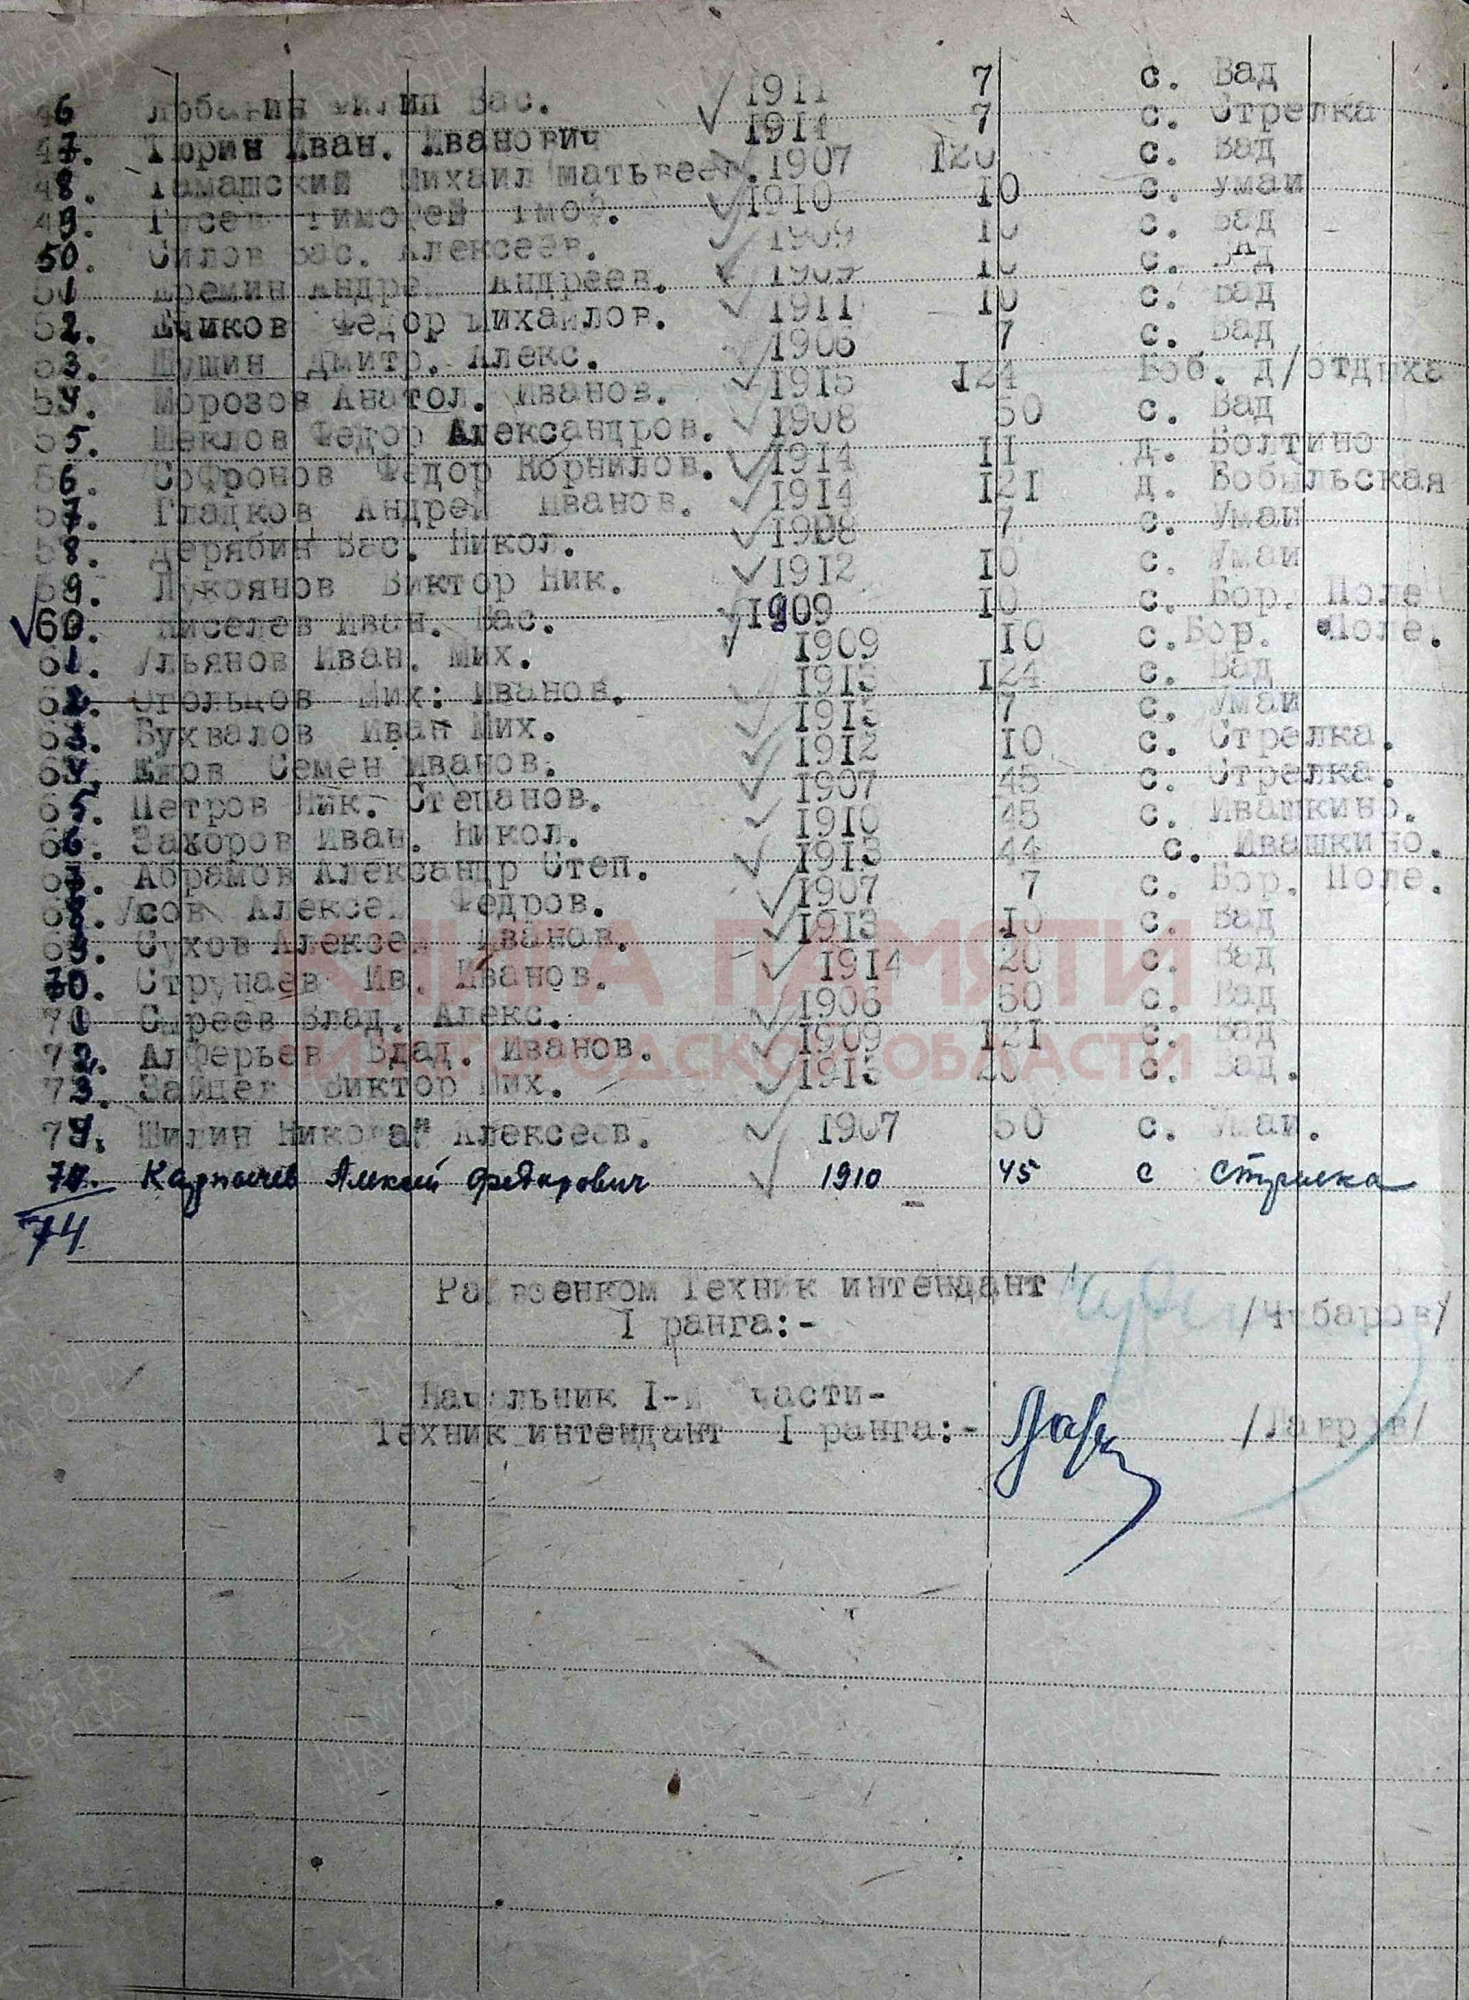 46 Лобанин Филип Вас. 1911 7 с. Вад
47. Тюрин Иван. Иванович 1914 7 с. Стрелка
48. Тамашский Михаил Матьвеев. 1907 120 с. Вад
49. Гусев Тимофей Тмоф. 1910 10 с. Умаи
50. Силов Вас. Алексеев. 1909 10 с. Вад
51 Еремин Андре Андреев. 1909 10 с. Вад
52. Ечиков Федор Михаилов. 1911 10 с. Вад
53. Шушин Дмитр. Алекс. 1906 7 с. Вад
54. Морозов Анатол. Иванов. 1915 124 Боб. д/отдыха
55. Шеклов Федор Александров. 1908 50 с. Вад
56. Софронов Федор Корнилов. 1914 11 д. Болтино
57. Гладков Андрей Иванов. 1914 121 д. Бобыльская
58. Дерябин Вас. Никол. 1908 7 с. Умаи
59. Лукоянов Виктор Ник. 1912 10 с. Умаи
60. Киселев Иван. Вас. 1909 10 с. Бор. Поле
61. Ульянов Иван. Мих. 1909 10 с. Бор. Поле.
62. Огольцов Мих: Иванов. 1913 124 с. Вад
63. Бухвалов Иван Мих. 1915 7 с. Умаи
64. Енов Семен Иванов. 1912 10 с. Стрелка.
65. Петров Ник. Степанов. 1907 45 с. Стрелка.
66. Захоров Иван. Никол. 1910 45 с. Ивашкино.
67. Абрамов Александр Степ. 1913 44 с. Ивашкино.
68. Усов Алексей Федров. 1907 7 с. Бор. Поле.
69. Сухов Алексей Иванов. 1913 10 с. Вад
70. Струнаев Ив. Иванов. 1914 20 с. Вад
71 Сыреев Влад. Алекс. 1906 50 с. Вад
72. Алферьев Влад. Иванов. 1909 121 с. Вад
73. Зайцев Виктор Мих. 1915 20 с. Вад.
74. Шилин Николай Алексеев. 1907 50 с. Умаи.
74. Карпычев Алексей Федарович 1910 45 с Стрелка
74
Райвоенком Техник интендант
I ранга:- /Чубаров/
Начальник I-й части-
Техник интендант I ранга:- /Лавров/
КНИГА ПАМЯТИ
НИЖЕГОРОДСКОЙ ОБЛАСТИ